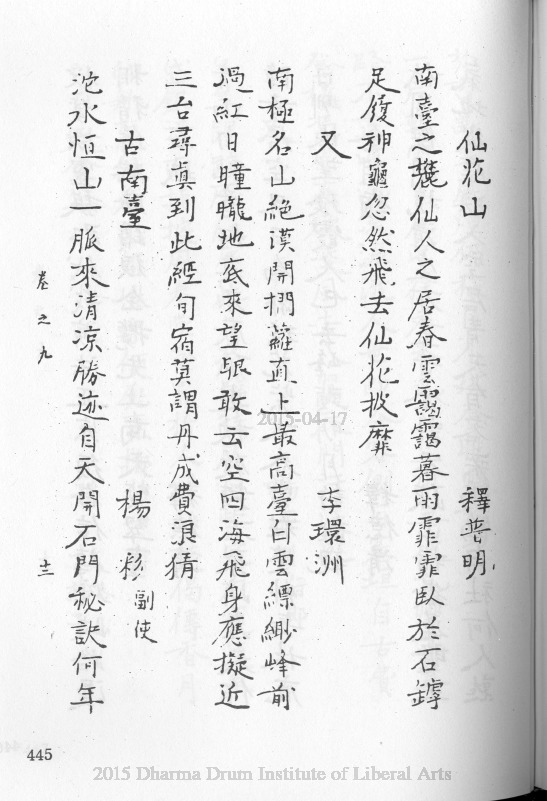 仙花山　釋普明
南臺之麓仙人之居春雲靄靄暮雨霏霏臥於石罅
足履神龜忽然飛去仙花披靡
又　李環洲
南極名山絶漠開捫蘿直上最高臺白雲縹緲峰前
過紅日曈曨地底來望眼敢云空四海飛身應擬近
三台尋真到此經旬宿莫謂丹成費浪猜
古南臺　楊彩副使
沱水恒山一脈來清凉勝迹自天開石門秘訣何年
卷之九　十二
445
2015-04-17
2015 Dharma Drum Institute of Liberal Arts